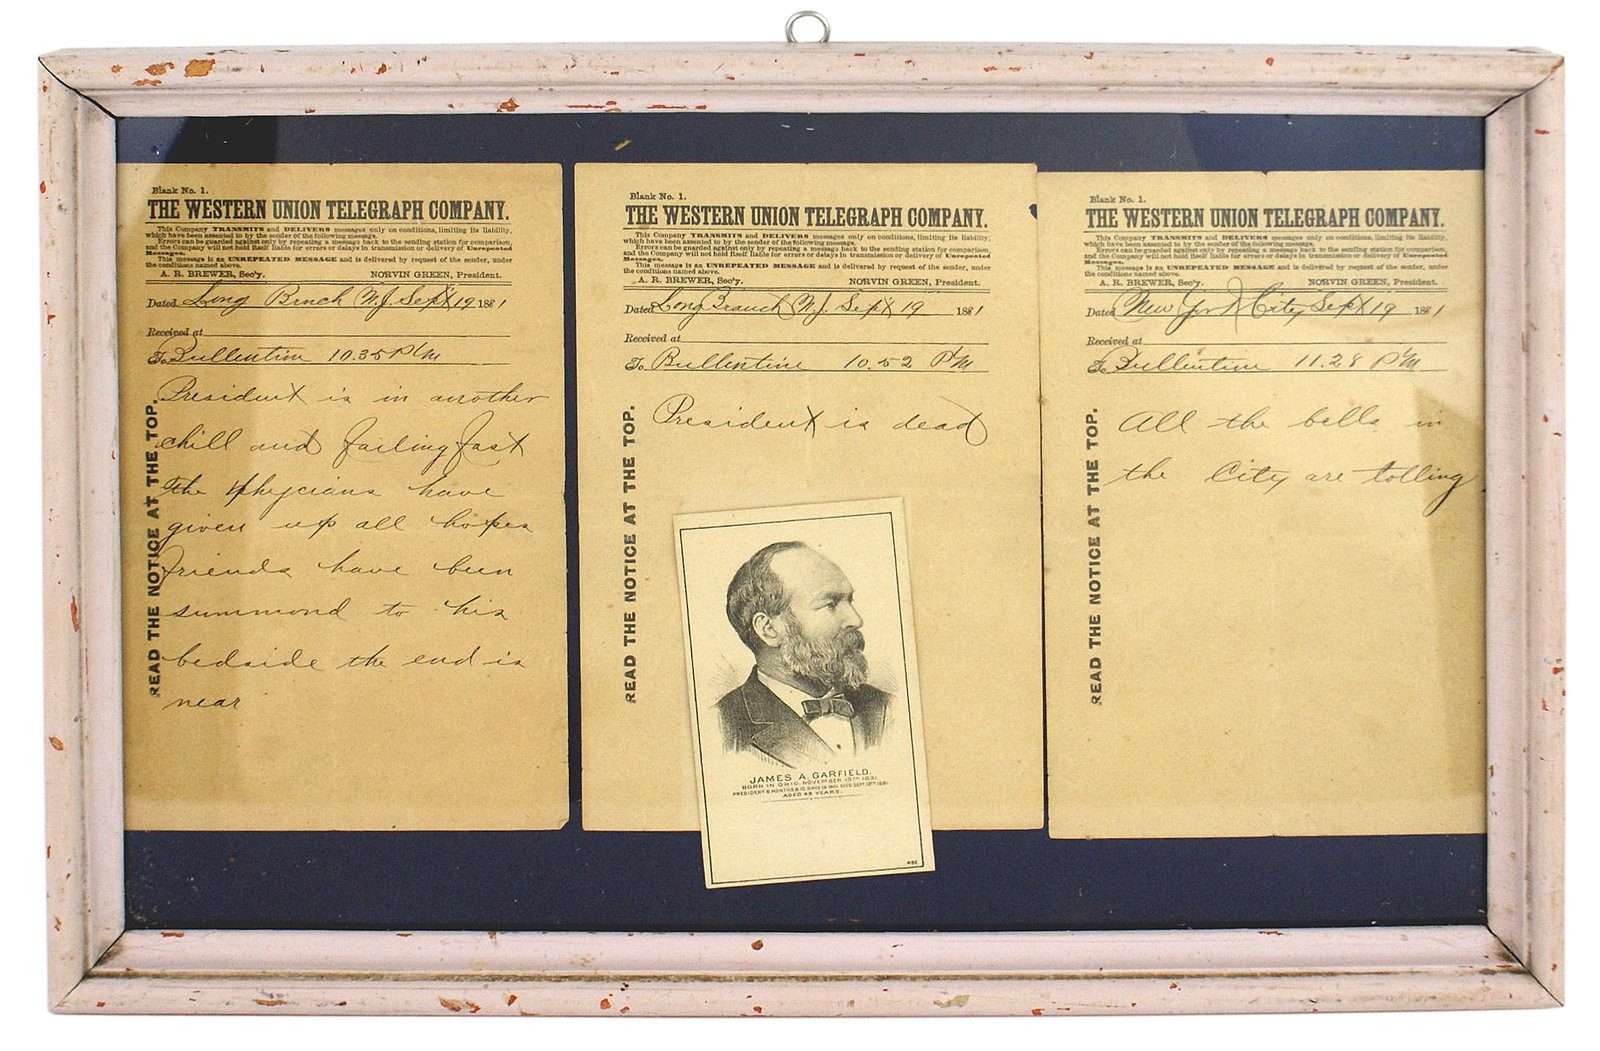 Blank No. 1.
THE WESTERN UNION TELEGRAPH COMPANY.
This Company TRANSMITS and DELIVERS messages only on conditions, limiting its liability,
which have been assented to by the sender of the following message.
Errors can be guarded against only by repeating a message back to the sending station for comparison,
and the Company will not hold itself liable for errors or delays in transmission or delivery of Unrepeated
Messages.
This message is an UNREPEATED MESSAGE and is delivered by request of the sender, under
the conditions named above.
A. R. BREWER, Sec'y. NORVIN GREEN, President.
Dated Long Brnch N.J. Sept 19 1881
Received at
To Bullentine 10.35 P M
READ THE NOTICE AT THE TOP.
President is in another
chill and failing fast
The phycians have
given up all hopes
Friends have been
summond to his
bedside the end is
near
Blank No. 1.
THE WESTERN UNION TELEGRAPH COMPANY.
This Company TRANSMITS and DELIVERS messages only on conditions, limiting its liability,
which have been assented to by the sender of the following message.
Errors can be guarded against only by repeating a message back to the sending station for comparison,
and the Company will not hold itself liable for errors or delays in transmission or delivery of Unrepeated
Messages.
This message is an UNREPEATED MESSAGE and is delivered by request of the sender, under
the conditions named above.
A. R. BREWER, Sec'y. NORVIN GREEN, President.
Dated Long Branch N.J. Sept 19 1881
Received at
To Bullentine 10.52 P M
READ THE NOTICE AT THE TOP.
President is dead
JAMES A. GARFIELD.
BORN IN OHIO, NOVEMBER 19TH 1831.
PRESIDENT 6 MONTHS & 15 DAYS IN 1881. DIED SEPT. 19TH 1881.
AGED 49 YEARS.
Blank No. 1.
THE WESTERN UNION TELEGRAPH COMPANY.
This Company TRANSMITS and DELIVERS messages only on conditions, limiting its liability,
which have been assented to by the sender of the following message.
Errors can be guarded against only by repeating a message back to the sending station for comparison,
and the Company will not hold itself liable for errors or delays in transmission or delivery of Unrepeated
Messages.
This message is an UNREPEATED MESSAGE and is delivered by request of the sender, under
the conditions named above.
A. R. BREWER, Sec'y. NORVIN GREEN, President.
Dated New York City Sept 19 1881
Received at
To Bullentine 11.28 P M
READ THE NOTICE AT THE TOP.
All the bells in
the City are tolling